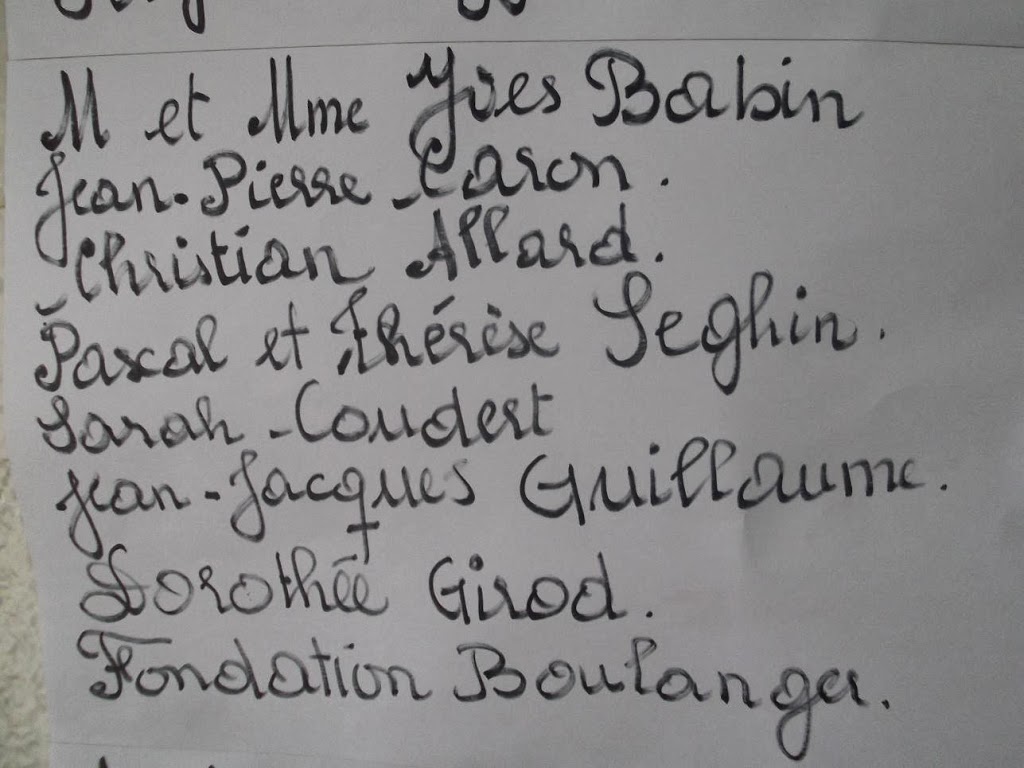 M et Mme Yves Babin
Jean-Pierre Caron.
Christian Allard.
Pascal et Thérèse Seghin.
Sarah Coudert
Jean-Jacques Guillaume.
Dorothée Girod.
Fondation Boulanger.